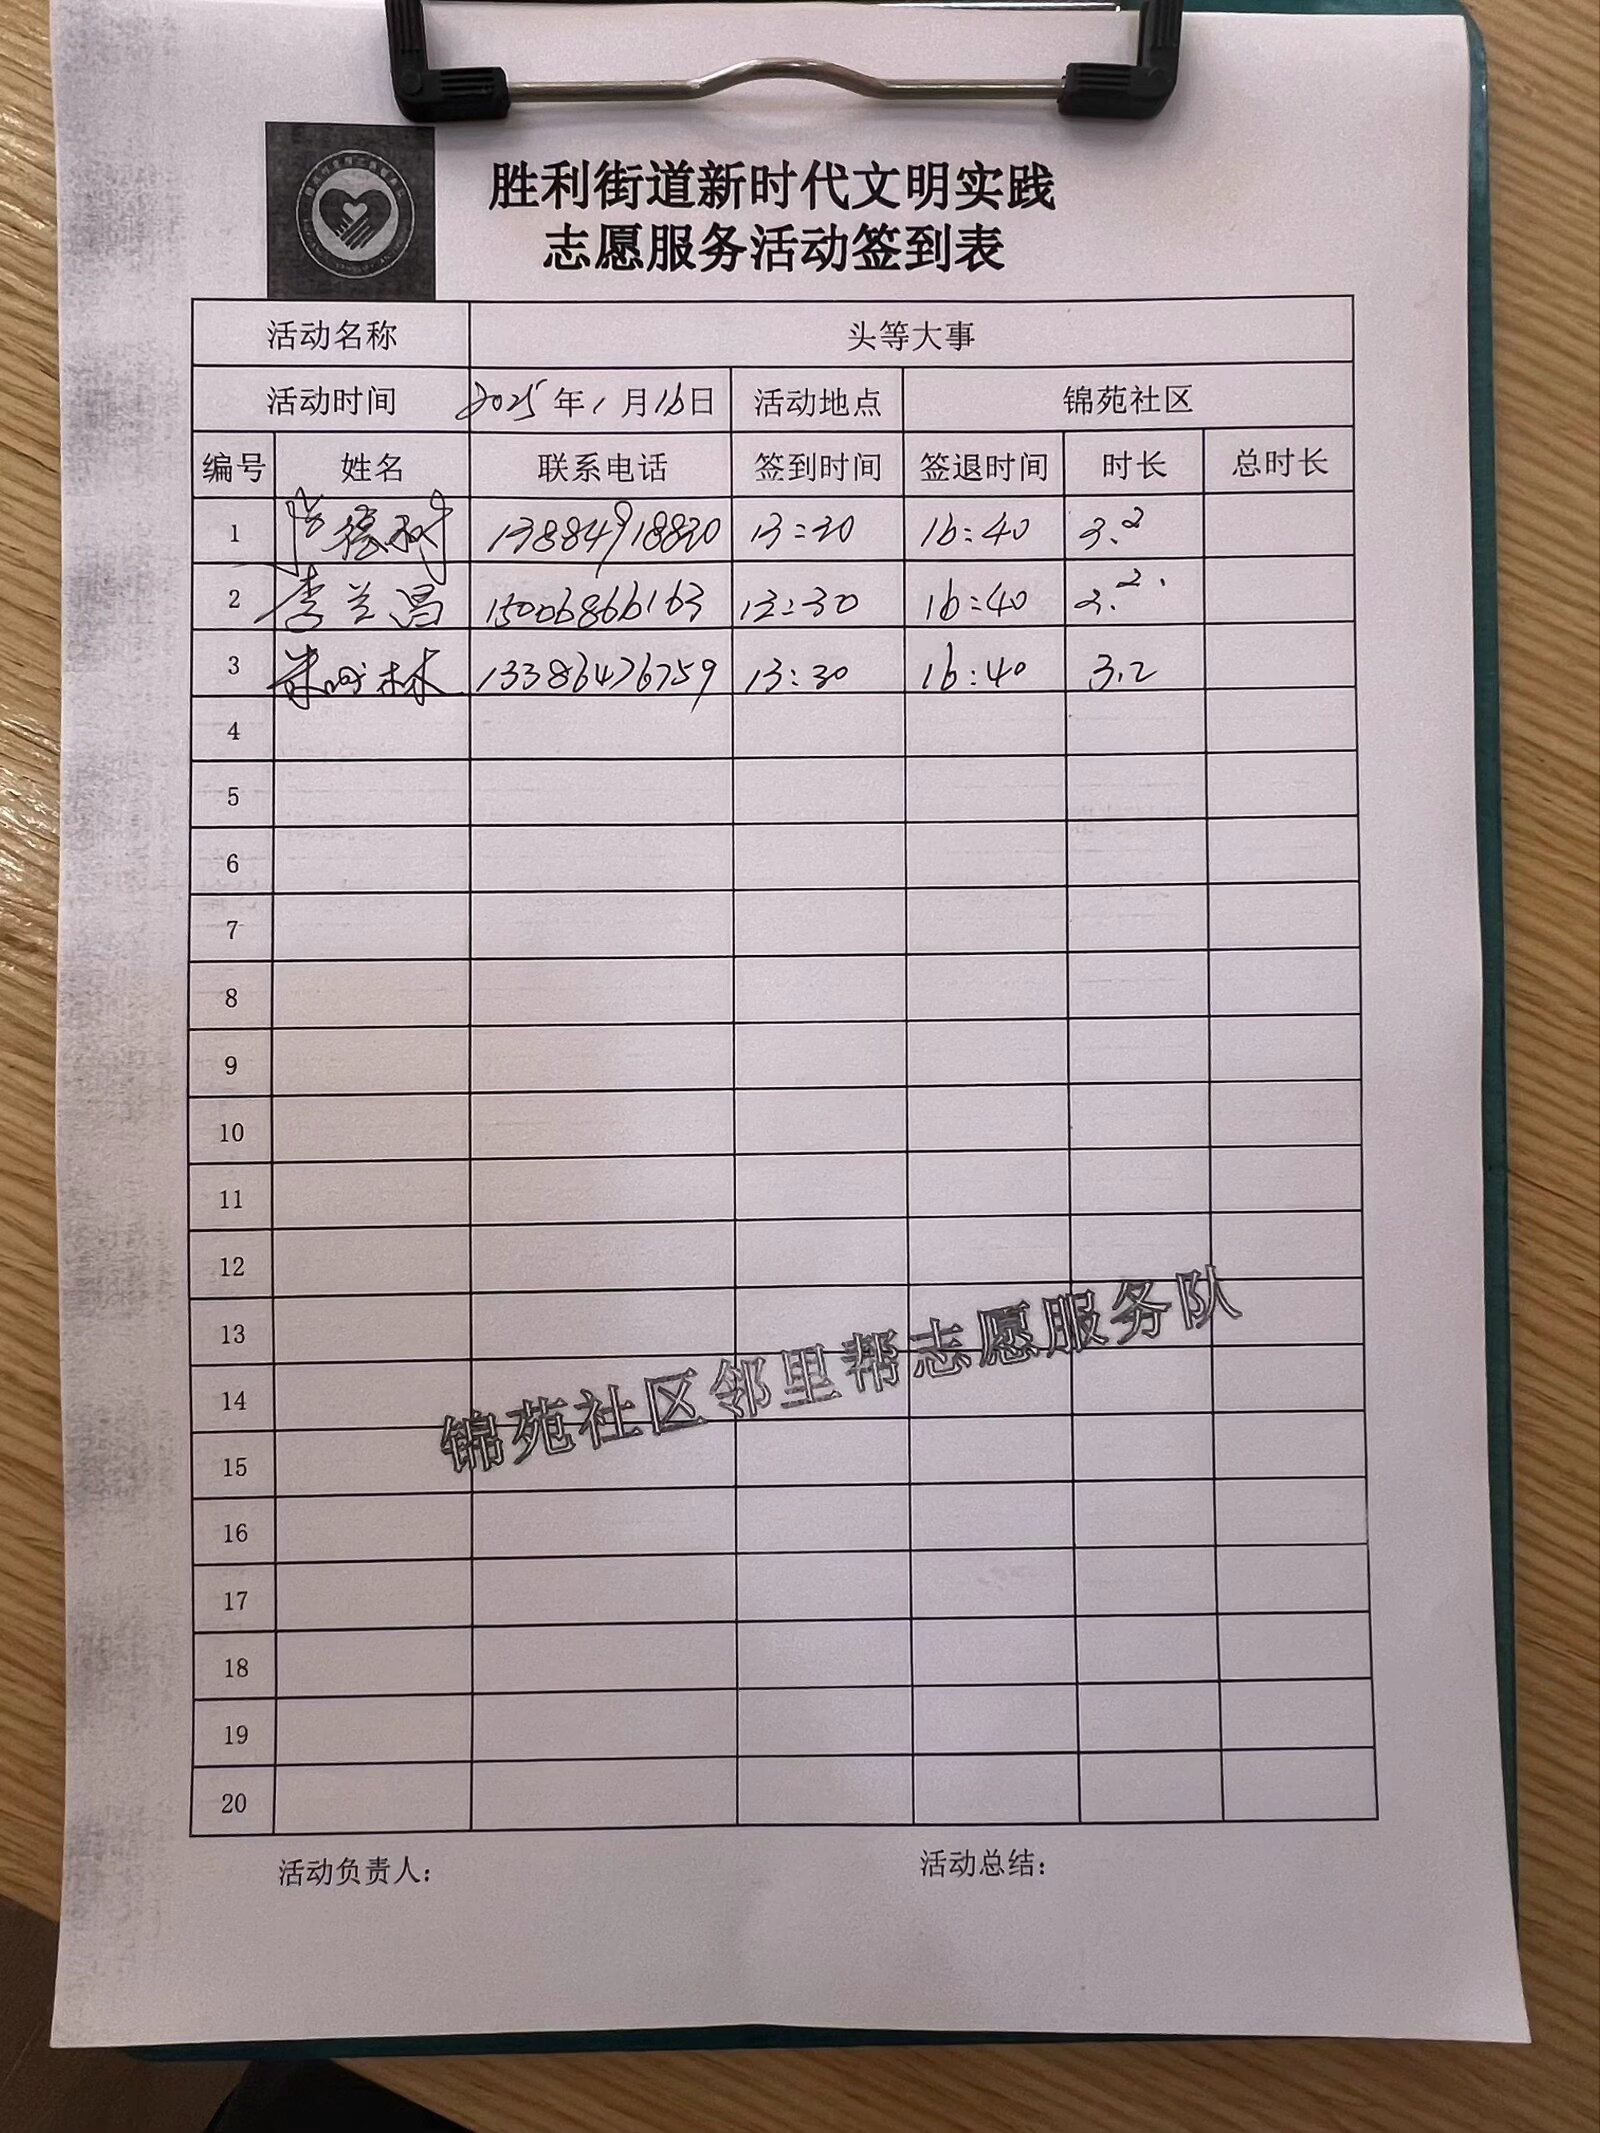 胜利街道新时代文明实践
志愿服务活动签到表
活动名称 头等大事
活动时间 2025年1月16日 活动地点 锦苑社区
编号 姓名 联系电话 签到时间 签退时间 时长 总时长
1 13884918820 13:30 16:40 3.2
2 李兰昌 15006866163 13:30 16:40 3.2
3 林 13386476759 13:30 16:40 3.2
4
5
6
7
8
9
10
11
12
13
14
15
16
17
18
19
20
锦苑社区邻里帮志愿服务队
活动负责人: 活动总结: